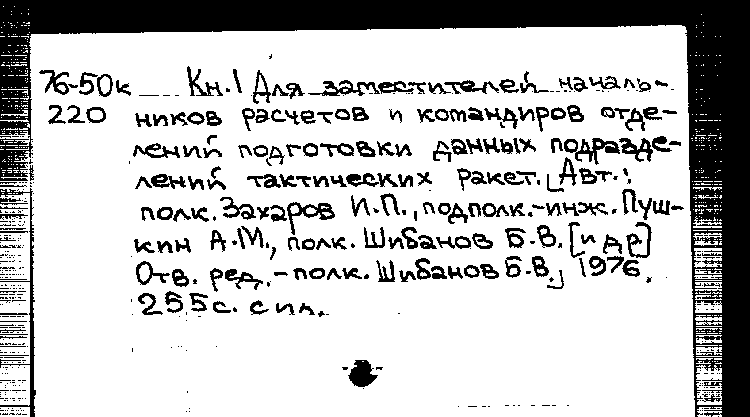 76-50к Кн.1 Для заместителей началь-
220 ников расчетов и командиров отде-
лений подготовки данных подразде-
лений тактических ракет. [Авт.:
полк. Захаров И.П., подполк.-инж. Пуш-
кин А.М., полк. Шибанов Б.В. [и др]
Отв. ред. - полк. Шибанов Б.В.] 1976.
255с. с ил.